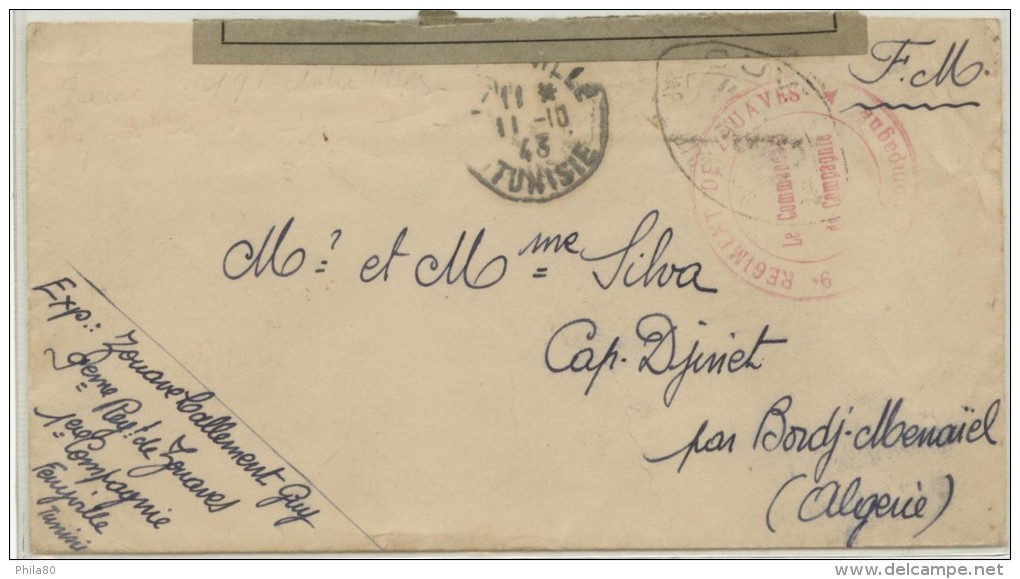 F.M.
11 *
11 -10
43
TUNISIE
9e REGIMENT DE ZOUAVES
Le Commandant
de Compagnie
Mr et Mme Silva
Cap-Djinet
par Bordj-Menaïel
(Algerie)
Exp.: Zouave Lallement Guy
9eme Regt de Zouaves
1ere Compagnie
Ferryville
Tunisie
Phila80
www.delcampe.net